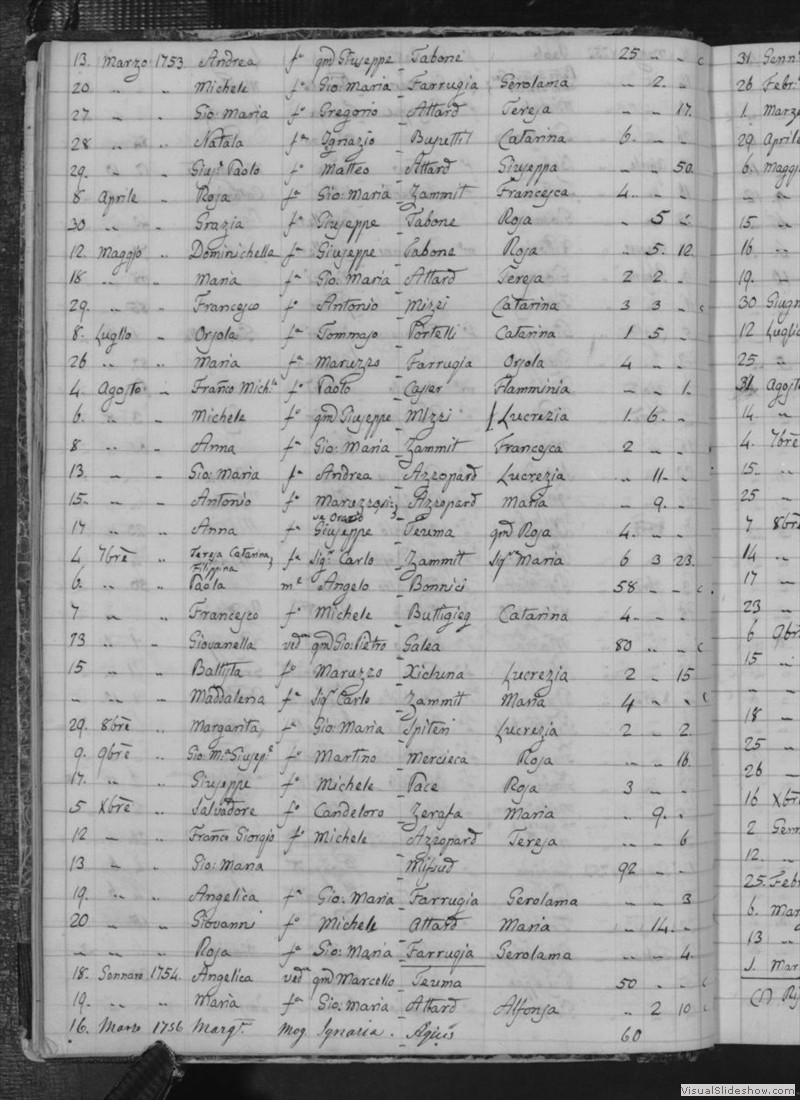 13. Marzo 1753 Andrea fo qm Giuseppe Tabone 25 - - c
20 " " Michele fo Gio: Maria Farrugia Gerolama - 2. -
27 " " Gio: Maria fo Gregorio Attard Teresa - - 17.
28 " " Natala fa Ignazio Busuttil Catarina 6. - -
29. " " Gius.e Paolo fo Matteo Attard Giuseppa - - 50.
8 Aprile " Rosa fa Gio: Maria Zammit Francesca 4. - -
30 " " Grazia fa Giuseppe Tabone Rosa - 5 -
12 Maggio " Dominichella fa Giuseppe Tabone Rosa - 5. 12
18 " " Maria fa Gio: Maria Attard Teresa 2 2 -
29. " " Francesco fo Antonio Mizzi Catarina 3 3 - c
8. Luglio " Orsola fa Tommaso Portelli Catarina 1 5 -
26 " " Maria fa Maruzzo Farrugia Orsola 4 - -
4. Agosto " Franco Mich.le fo Paolo Casier Flamminia - - 1.
6. " " Michele fo qm Giuseppe Mizzi Lucrezia 1. 6. -
8 " " Anna fa Gio: Maria Zammit Francesca 2 - -
13. " " Gio: Maria fo Andrea Azzopard Lucrezia " 11. -
15. " " Antonio fo Azzopard Maria - 9. -
17 " " Anna fa Giuseppe Teuma qm Rosa 4. - -
4 7bre " Teresa Catarina, Filippina fa Sig.r Carlo Zammit Sig.a Maria 6 3 23.
6. " " Paola Angelo Bonnici 58 - - c
7 " " Francesco fo Michele Buttigieg Catarina 4. - -
13 " " Giovanella ved.a qm Gio: Pietro Galea 80 " - c
15 " " Battista fo Maruzzo Xicluna Lucrezia 2 - 15
- - " Maddalena fa Sig.r Carlo Zammit Maria 4 - - c
29. 8bre " Margarita, fa Gio: Maria Spiteri Lucrezia 2 - 2.
9. 9bre " Gio: M.a Giusep.e fo Martino Mercieca Rosa " - 16.
17. " " Giuseppe fo Michele Pace Rosa 3 - -
5 Xbre " Salvadore fo Candeloro Zerafa Maria " 9. .
12 - " Franco Giorgio fo Michele Azzopard Teresa " - 6
13 - " Gio: Maria Mifsud 92 - -
19. " " Angelica fa Gio: Maria Farrugia Gerolama - - 3
20 - " Giovanni fo Michele Attard Maria - 14. -
- - " Rosa fa Gio: Maria Farrugia Gerolama - - 4.
18. Gennaro 1754. Angelica ved.a qm Marcello Teuma 50 - - c
19. " " Maria fa Gio: Maria Attard Alfonsa " 2 10 c
16. Marzo 1756 Marg.ta Mog Ignazio. Agius 60
31. Genn
26 Febr
1. Marzo
29. Aprile
6. Maggio
" "
15 "
16 "
19. "
30 Giugn
12 Luglio
25 "
31. Agosto
14 "
4. 7bre
15. "
25 "
7 8bre
14 "
17 "
23 "
6 9bre
15 "
- -
18 -
25 "
26 -
16 Xbre
2 Genn
12. "
25. Febr
6. Mar
13 "
1. Mar
VisualSlideshow.com